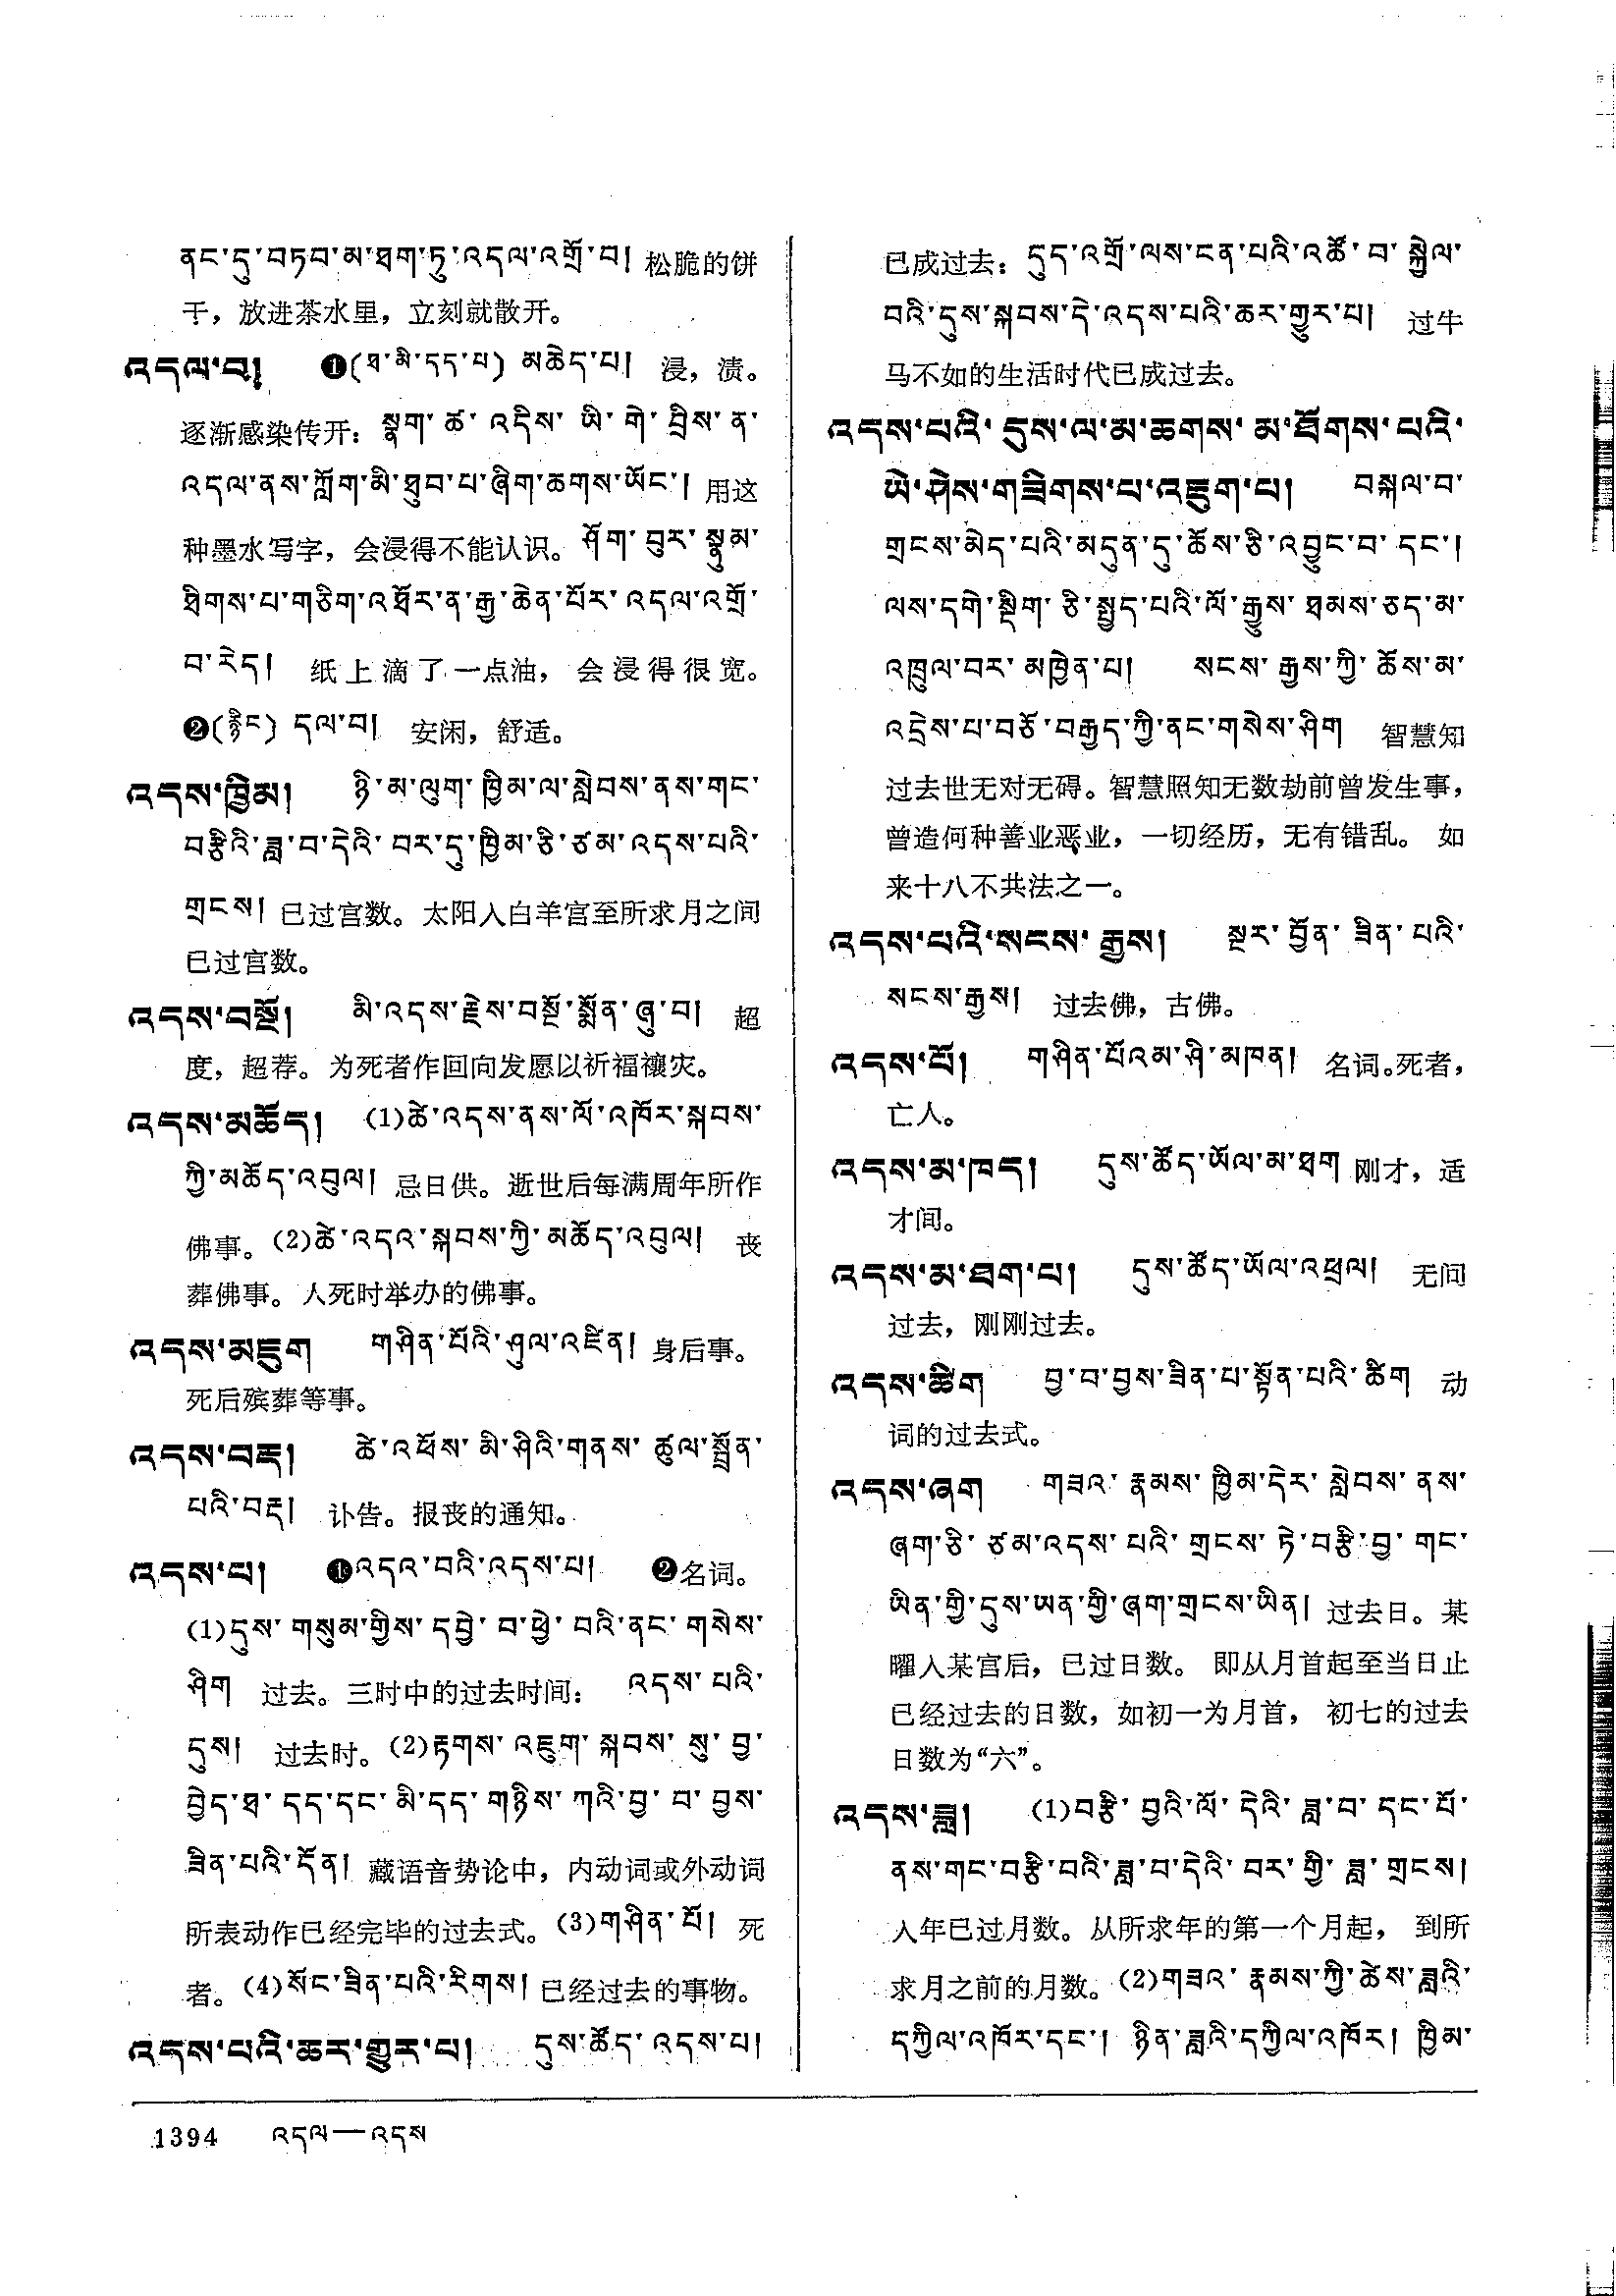 ནང་དུ་བཏབ་མ་ཐག་ཏུ་འདལ་འགྲོ་བ། 松脆的饼
干，放进茶水里，立刻就散开。
འདལ་བ། ❶(ཐ་མི་དད་པ) མཆེད་པ། 浸，渍。
逐渐感染传开：སྣག་ཚ་འདིས་ཡི་གེ་བྲིས་ན་
འདལ་ནས་ཀློག་མི་ཐུབ་པ་ཞིག་ཆགས་ཡོང་། 用这
种墨水写字，会浸得不能认识。ཤོག་བུར་སྣུམ་
ཐིགས་པ་གཅིག་འཐོར་ན་རྒྱ་ཆེན་པོར་འདལ་འགྲོ་
བ་རེད། 纸上滴了一点油，会浸得很宽。
❷(རྙིང) དལ་བ། 安闲，舒适。
འདས་ཁྱིམ། ཉི་མ་ལུག་ཁྱིམ་ལ་སླེབས་ནས་གང་
བརྩིའི་ཟླ་བ་དེའི་བར་དུ་ཁྱིམ་ཅི་ཙམ་འདས་པའི་
གྲངས། 已过宫数。太阳入白羊宫至所求月之间
已过宫数。
འདས་བསྔོ། མི་འདས་རྗེས་བསྔོ་སྨོན་ཞུ་བ། 超
度，超荐。为死者作回向发愿以祈福禳灾。
འདས་མཆོད། (1)ཚེ་འདས་ནས་ལོ་འཁོར་སྐབས་
ཀྱི་མཆོད་འབུལ། 忌日供。逝世后每满周年所作
佛事。(2)ཚེ་འདའ་སྐབས་ཀྱི་མཆོད་འབུལ། 丧
葬佛事。人死时举办的佛事。
འདས་མཇུག གཤིན་པོའི་ཤུལ་འཛིན། 身后事。
死后殡葬等事。
འདས་བརྡ། ཚེ་འཕོས་མི་ཤིའི་གནས་ཚུལ་སྤྲོན་
པའི་བརྡ། 讣告。报丧的通知。
འདས་པ། ❶འདའ་བའི་འདས་པ། ❷名词。
(1)དུས་གསུམ་གྱིས་དབྱེ་བ་ཕྱེ་བའི་ནང་གསེས་
ཤིག 过去。三时中的过去时间：འདས་པའི་
དུས། 过去时。(2)རྟགས་འཇུག་སྐབས་སུ་བྱ་
བྱེད་ཐ་དད་དང་མི་དད་གཉིས་ཀའི་བྱ་བ་བྱས་
ཟིན་པའི་དོན། 藏语音势论中，内动词或外动词
所表动作已经完毕的过去式。(3)གཤིན་པོ། 死
者。(4)སོང་ཟིན་པའི་རིགས། 已经过去的事物。
འདས་པའི་ཆར་གྱུར་པ། དུས་ཚོད་འདས་པ།
已成过去：དུད་འགྲོ་ལས་ངན་པའི་འཚོ་བ་སྐྱེལ་
བའི་དུས་སྐབས་དེ་འདས་པའི་ཆར་གྱུར་པ། 过牛
马不如的生活时代已成过去。
འདས་པའི་དུས་ལ་མ་ཆགས་མ་ཐོགས་པའི་
ཡེ་ཤེས་གཟིགས་པ་འཇུག་པ། བསྐལ་བ་
གྲངས་མེད་པའི་མདུན་དུ་ཆོས་ཅི་འབྱུང་བ་དང་།
ལས་དགེ་སྡིག་ཅི་སྤྱད་པའི་ལོ་རྒྱུས་ཐམས་ཅད་མ་
འཁྲུལ་བར་མཁྱེན་པ། སངས་རྒྱས་ཀྱི་ཆོས་མ་
འདྲེས་པ་བཅོ་བརྒྱད་ཀྱི་ནང་གསེས་ཤིག 智慧知
过去世无对无碍。智慧照知无数劫前曾发生事，
曾造何种善业恶业，一切经历，无有错乱。如
来十八不共法之一。
འདས་པའི་སངས་རྒྱས། སྔར་བྱོན་ཟིན་པའི་
སངས་རྒྱས། 过去佛，古佛。
འདས་པོ། གཤིན་པོའམ་ཤི་མཁན། 名词。死者，
亡人。
འདས་མ་ཁད། དུས་ཚོད་ཡོལ་མ་ཐག 刚才，适
才间。
འདས་མ་ཐག་པ། དུས་ཚོད་ཡོལ་འཕྲལ། 无间
过去，刚刚过去。
འདས་ཚིག བྱ་བ་བྱས་ཟིན་པ་སྟོན་པའི་ཚིག 动
词的过去式。
འདས་ཞག གཟའ་རྣམས་ཁྱིམ་དེར་སླེབས་ནས་
ཞག་ཅི་ཙམ་འདས་པའི་གྲངས་ཏེ་བརྩི་བྱ་གང་
ཡིན་གྱི་དུས་ཡན་གྱི་ཞག་གྲངས་ཡིན། 过去日。某
曜入某宫后，已过日数。即从月首起至当日止
已经过去的日数，如初一为月首，初七的过去
日数为“六”。
འདས་ཟླ། (1)བརྩི་བྱའི་ལོ་དེའི་ཟླ་བ་དང་པོ་
ནས་གང་བརྩི་བའི་ཟླ་བ་དེའི་བར་གྱི་ཟླ་གྲངས།
入年已过月数。从所求年的第一个月起，到所
求月之前的月数。(2)གཟའ་རྣམས་ཀྱི་ཚེས་ཟླའི་
དཀྱིལ་འཁོར་དང་། ཉིན་ཟླའི་དཀྱིལ་འཁོར། ཁྱིམ་
1394 འདལ—འདས